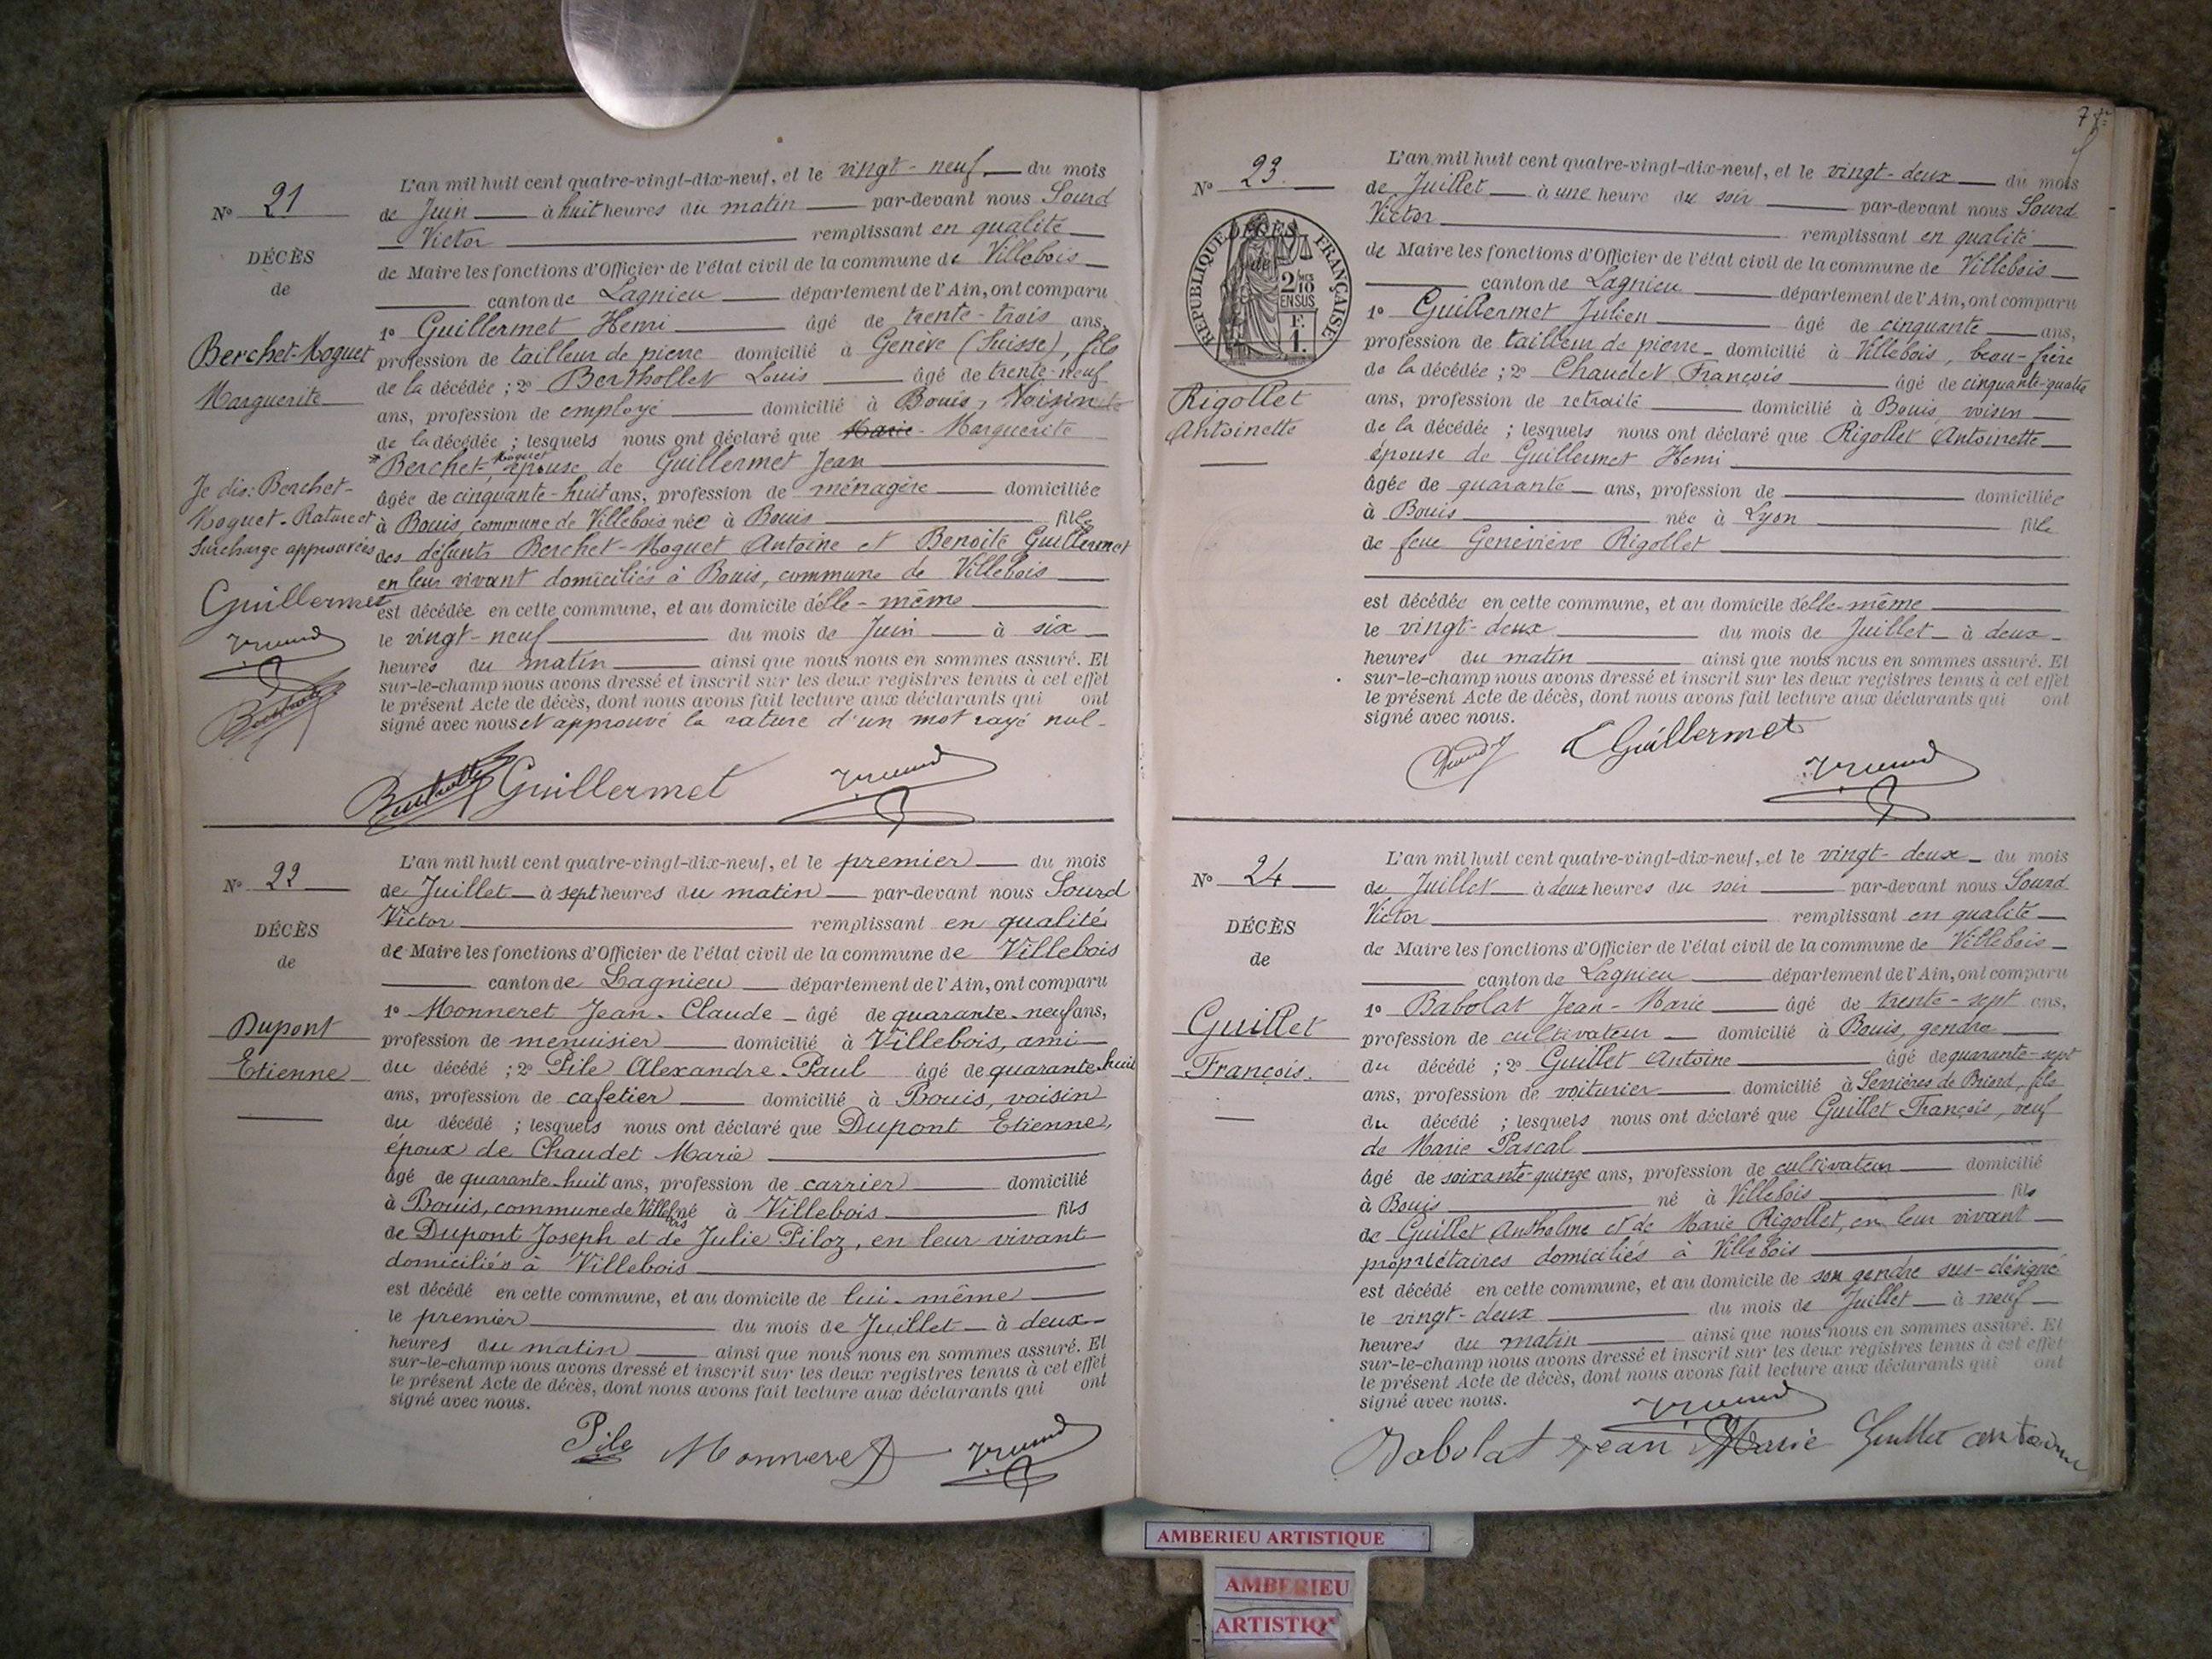 N° 21
DÉCÈS
de
Berchet-Moguet
Marguerite
Je dis: Berchet-
Moguet. Rature et
Surcharge approuvées
Guillermet
L'an mil huit cent quatre-vingt-dix-neuf, et le vingt-neuf du mois
de Juin à huit heures du matin par-devant nous Sourd
Victor remplissant en qualité
de Maire les fonctions d'Officier de l'état civil de la commune de Villebois
canton de Lagnieu département de l'Ain, ont comparu
1° Guillermet Henri âgé de trente-trois ans,
profession de tailleur de pierre domicilié à Genève (Suisse), fils
de la décédée ; 2° Berthollet Louis âgé de trente-neuf
ans, profession de employé domicilié à Bouis, Voisin
de la décédée ; lesquels nous ont déclaré que Marie Marguerite
Berchet-Moguet, épouse de Guillermet Jean
âgée de cinquante-huit ans, profession de ménagère domiciliée
à Bouis, commune de Villebois née à Bouis fille
des défunts Berchet-Moguet Antoine et Benoite Guillermet
en leur vivant domiciliés à Bouis, commune de Villebois
est décédée en cette commune, et au domicile d'elle-même
le vingt-neuf du mois de Juin à six
heures du matin ainsi que nous nous en sommes assuré. Et
sur-le-champ nous avons dressé et inscrit sur les deux registres tenus à cet effet
le présent Acte de décès, dont nous avons fait lecture aux déclarants qui ont
signé avec nous et approuvé la rature d'un mot rayé nul-
Guillermet
N° 22
DÉCÈS
de
Dupont
Etienne
L'an mil huit cent quatre-vingt-dix-neuf, et le premier du mois
de Juillet à sept heures du matin par-devant nous Sourd
Victor remplissant en qualité
de Maire les fonctions d'Officier de l'état civil de la commune de Villebois
canton de Lagnieu département de l'Ain, ont comparu
1° Monneret Jean-Claude âgé de quarante-neuf ans,
profession de menuisier domicilié à Villebois, ami
du décédé ; 2° Pile Alexandre-Paul âgé de quarante-huit
ans, profession de cafetier domicilié à Bouis, voisin
du décédé ; lesquels nous ont déclaré que Dupont Etienne,
époux de Chaudet Marie
âgé de quarante-huit ans, profession de carrier domicilié
à Bouis, commune de Villebois né à Villebois fils
de Dupont Joseph et de Julie Piloz, en leur vivant
domiciliés à Villebois
est décédé en cette commune, et au domicile de lui-même
le premier du mois de Juillet à deux
heures du matin ainsi que nous nous en sommes assuré. Et
sur-le-champ nous avons dressé et inscrit sur les deux registres tenus à cet effet
le présent Acte de décès, dont nous avons fait lecture aux déclarants qui ont
signé avec nous.
Pile Monneret
N° 23
DÉCÈS
de
RÉPUBLIQUE FRANÇAISE
2/10 MES
EN SUS
F.
1.
Rigollet
Antoinette
L'an mil huit cent quatre-vingt-dix-neuf, et le vingt-deux du mois
de Juillet à une heure du soir par-devant nous Sourd
Victor remplissant en qualité
de Maire les fonctions d'Officier de l'état civil de la commune de Villebois
canton de Lagnieu département de l'Ain, ont comparu
1° Guillermet Julien âgé de cinquante ans,
profession de tailleur de pierre domicilié à Villebois, beau-frère
de la décédée ; 2° Chaudet François âgé de cinquante-quatre
ans, profession de retraité domicilié à Bouis, voisin
de la décédée ; lesquels nous ont déclaré que Rigollet Antoinette
épouse de Guillermet Henri
âgée de quarante ans, profession de domiciliée
à Bouis née à Lyon fille
de feue Geneviève Rigollet
est décédée en cette commune, et au domicile d'elle-même
le vingt-deux du mois de Juillet à deux
heures du matin ainsi que nous nous en sommes assuré. Et
sur-le-champ nous avons dressé et inscrit sur les deux registres tenus à cet effet
le présent Acte de décès, dont nous avons fait lecture aux déclarants qui ont
signé avec nous.
Guillermet
N° 24
DÉCÈS
de
Guillet
François.
L'an mil huit cent quatre-vingt-dix-neuf, et le vingt-deux du mois
de Juillet à deux heures du soir par-devant nous Sourd
Victor remplissant en qualité
de Maire les fonctions d'Officier de l'état civil de la commune de Villebois
canton de Lagnieu département de l'Ain, ont comparu
1° Babolat Jean-Marie âgé de trente-sept ans,
profession de cultivateur domicilié à Bouis, gendre
du décédé ; 2° Guillet Antoine âgé de quarante-sept
ans, profession de voiturier domicilié à Serrières de Briord, fils
du décédé ; lesquels nous ont déclaré que Guillet François, veuf
de Marie Pascal
âgé de soixante-quinze ans, profession de cultivateur domicilié
à Bouis né à Villebois fils
de Guillet Anthelme et de Marie Rigollet, en leur vivant
propriétaires domiciliés à Villebois
est décédé en cette commune, et au domicile de son gendre sus-désigné
le vingt-deux du mois de Juillet à neuf
heures du matin ainsi que nous nous en sommes assuré. Et
sur-le-champ nous avons dressé et inscrit sur les deux registres tenus à cet effet
le présent Acte de décès, dont nous avons fait lecture aux déclarants qui ont
signé avec nous.
Babolat Jean Marie Guillet antoine
AMBERIEU ARTISTIQUE
AMBERIEU
ARTISTIQ